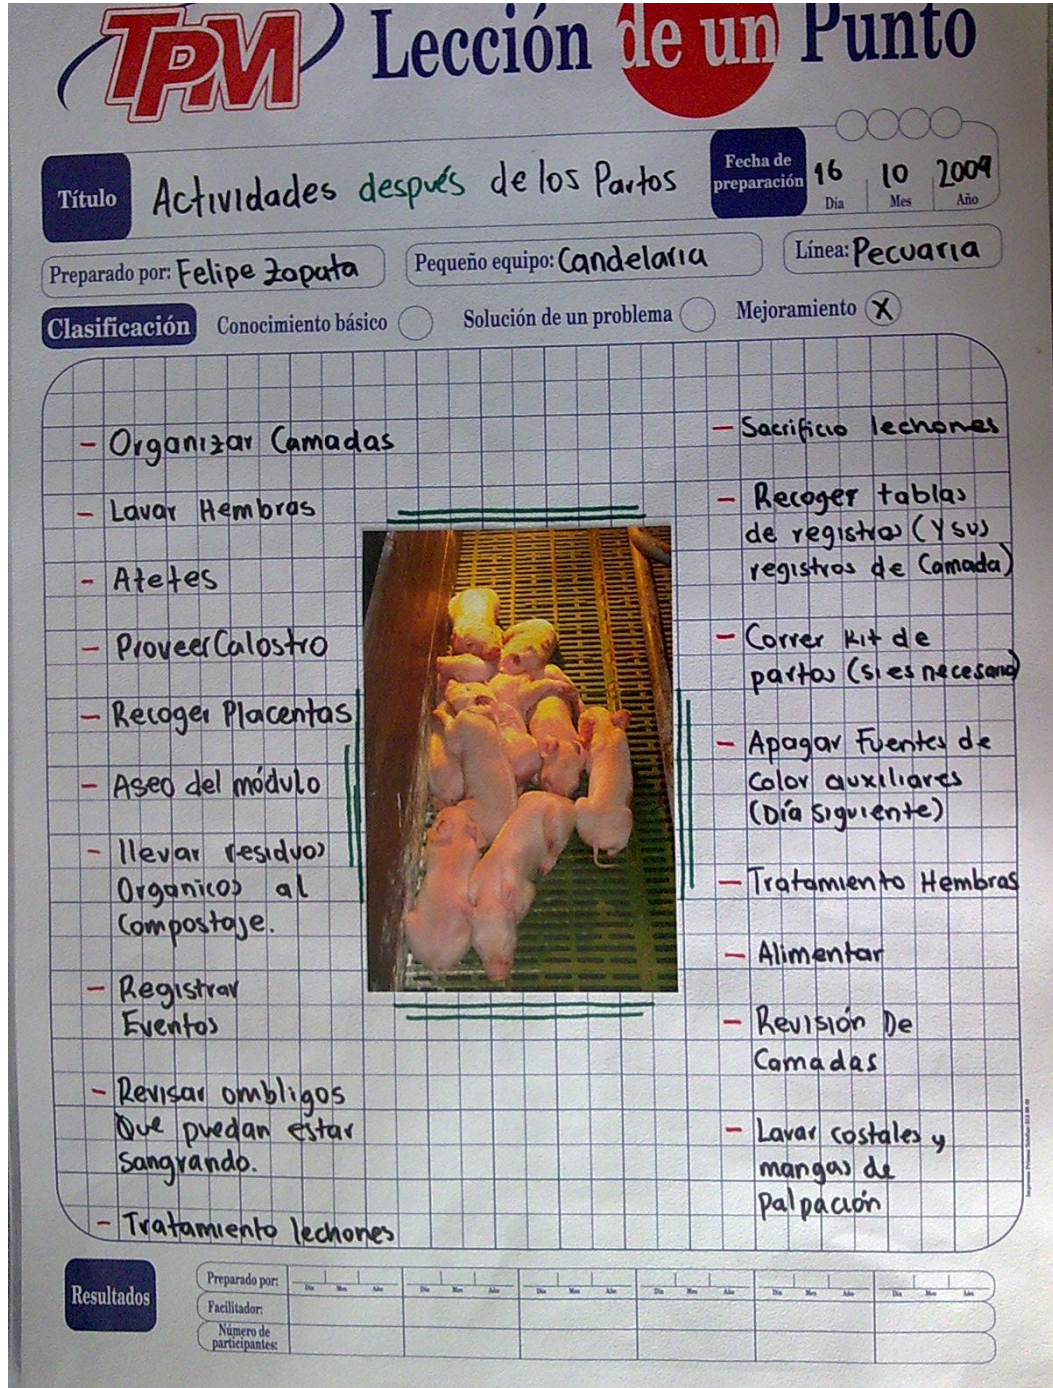 TPM Lección de un Punto
Título Actividades después de los Partos
Fecha de preparación 16 10 2009
Día Mes Año
Preparado por: Felipe Zapata
Pequeño equipo: Candelaria
Línea: Pecuaria
Clasificación Conocimiento básico Solución de un problema Mejoramiento X
- Organizar Camadas
- Lavar Hembras
- Atetes
- Proveer Calostro
- Recoger Placentas
- Aseo del módulo
- llevar residuos
Organicos al
Compostaje.
- Registrar
Eventos
- Revisar ombligos
Que puedan estar
Sangrando.
- Tratamiento lechones
- Sacrificio lechones
- Recoger tablas
de registros (Y sus
registros de Camada)
- Correr Kit de
partos (Si es necesario)
- Apagar Fuentes de
Calor auxiliares
(Día Siguiente)
- Tratamiento Hembras
- Alimentar
- Revisión De
Camadas
- Lavar costales y
mangas de
Palpación
Resultados
Preparado por:
Día Mes Año Día Mes Año Día Mes Año Día Mes Año Día Mes Año Día Mes Año
Facilitador:
Número de
participantes: